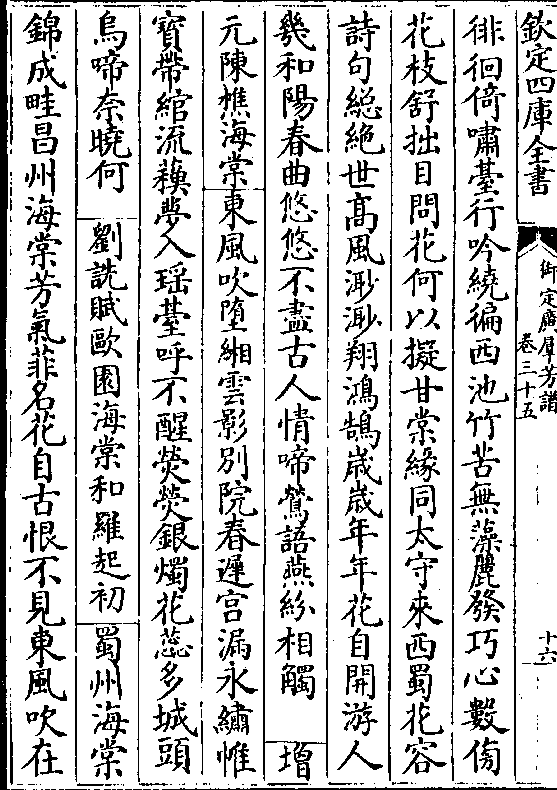 欽定四庫全書
御定廣群芳譜
卷三十五
十六
徘徊倚嘯臺行吟繞徧西池竹苦無藻麗發巧心數傍
花枝舒拙目問花何以擬甘棠緣同太守來西蜀花容
詩句縂絶世髙風渺渺翔鴻鵠嵗嵗年年花自開游人
幾和陽春曲悠悠不盡古人情啼鶯語燕紛相觸 増
元陳樵海棠東風吹墮緗雲影別院春遲宫漏永繡帷
寳帶綰流蘓夢入瑶臺呼不醒熒熒銀燭花蕊多城頭
烏啼奈曉何 劉詵賦歐園海棠和羅起初 蜀州海棠
錦成畦昌州海棠芳氣菲名花自古恨不見東風吹在